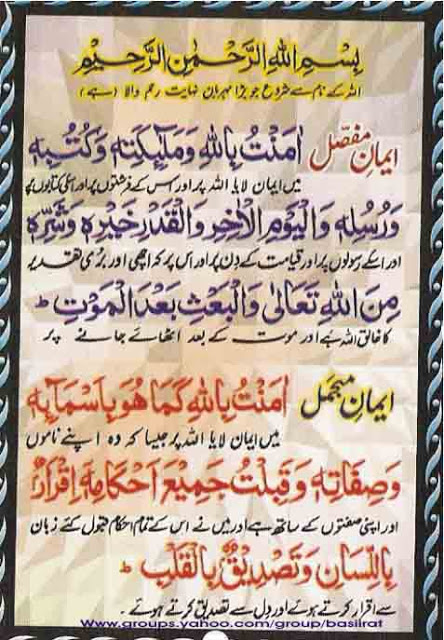 بِسْمِ اللهِ الرَّحْمٰنِ الرَّحِیْمِ
اللہ کے نام سے شروع جو بڑا مہربان نہایت رحم والا (ہے)
ایمانِ مفصّل اٰمَنْتُ بِاللهِ وَمَلٰٓئِکَتِهٖ وَکُتُبِهٖ
میں ایمان لایا اللہ پر اور اس کے فرشتوں پر اور اسکی کتابوں پر
وَرُسُلِهٖ وَالْیَوْمِ الْاٰخِرِ وَالْقَدْرِ خَیْرِهٖ وَشَرِّهٖ
اور اسکے رسولوں پر اور قیامت کے دن پر اور اس پر کہ اچھی اور بری تقدیر
مِنَ اللهِ تَعَالٰی وَالْبَعْثِ بَعْدَ الْمَوْتِ ؕ
کا خالق اللہ ہے اور موت کے بعد اٹھائے جانے پر
ایمانِ مجمل اٰمَنْتُ بِاللهِ کَمَا هُوَ بِاَسْمَآئِهٖ
میں ایمان لایا اللہ پر جیسا کہ وہ اپنے ناموں
وَصِفَاتِهٖ وَقَبِلْتُ جَمِیْعَ اَحْکَامِهٖ اِقْرَارٌ
اور اپنی صفتوں کے ساتھ ہے اور میں نے اس کے تمام احکام قبول کئے زبان
بِاللِّسَانِ وَتَصْدِیْقٌ بِالْقَلْبِ ؕ
سے اقرار کرتے ہوئے اور دل سے تصدیق کرتے ہوئے ۔
www.groups.yahoo.com/group/basilrat